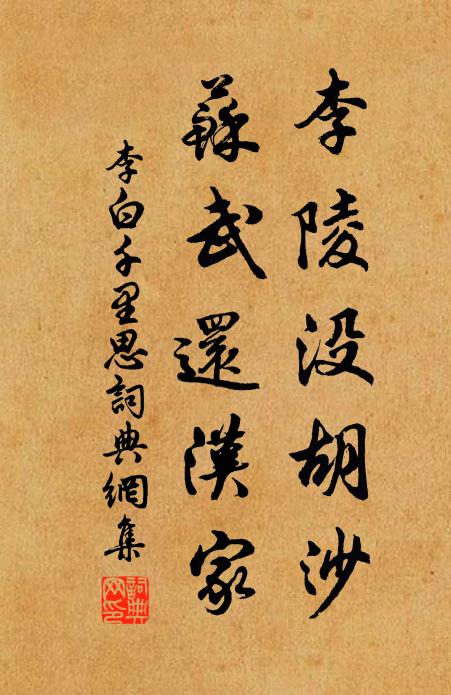 李陵没胡沙
蘇武還漢家
李白千里思詞典網集
詞典網印